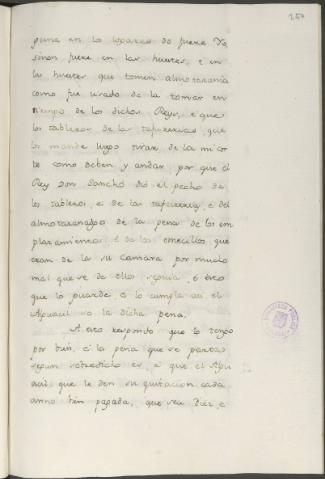 257
pena en los logares do fuere Yo
sinon fuere en las huertes, e en
las huertes que tomen almotazania
como fue usado de la tomar en
tiempo de los dichos Reys, e que
los tableros de las tafurerias, que
los mande luego tirar de la mi cor
te como deben y andar, por que el
Rey Don Sancho dió el pecho de
los tableros, e de las tafurerias, e del
almotazanadgo de la pena de los em
plazamientos, é de los omecillos, que
eran de la su Camara por mucho
mal que se de ellos seguia, é esto
que lo guarde, e lo cumpla asi el
Alguacil so la dicha pena.
A esto respondo que lo tengo
por bien, é la pena que se parta
segun sobredicho es, é que el Algu
acil que le den su quitacion cada
anno bien pagada, que sea Diez, e